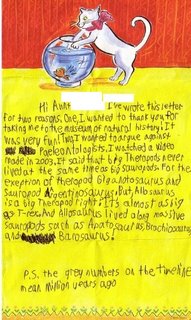 Hi Aunt I've wrote this letter
for two reasons. One, I wanted to thank you for
taking me to the museum of natural history. It
was very fun. Two, I wanted to argue against
Paeleontologists. I watched a video
made in 2003. It said that big Theropods never
lived at the same time as big sauropods. For the
exeption of theropod Gigantosaurus and
Sauropod Argentinosaurus. But, Allosaurus
is a big Theropod right? It's almost as big
as T-rex. And Allosaurus lived along massive
sauropods such as Apatosaurus, Brachiosaurus,
and Barosaurus!
P.S. the grey numbers on the timeline
mean million years ago